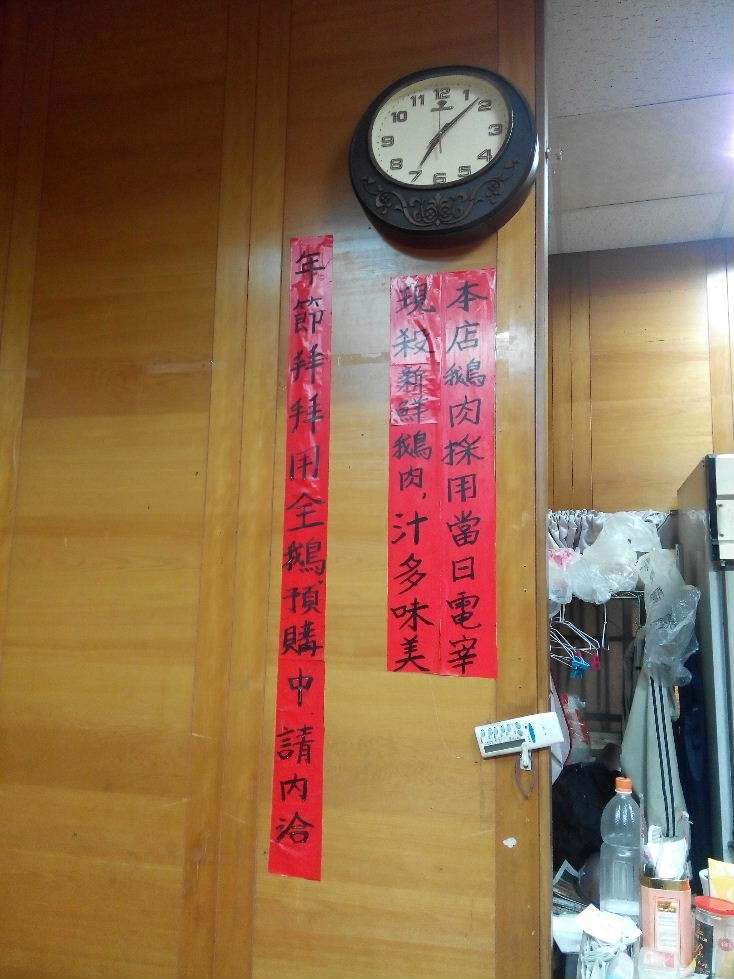 本店鵝肉採用當日電宰
現殺新鮮鵝肉,汁多味美
年節拜拜用全鵝預購中請內洽
12
1
2
3
4
5
6
7
8
9
10
11